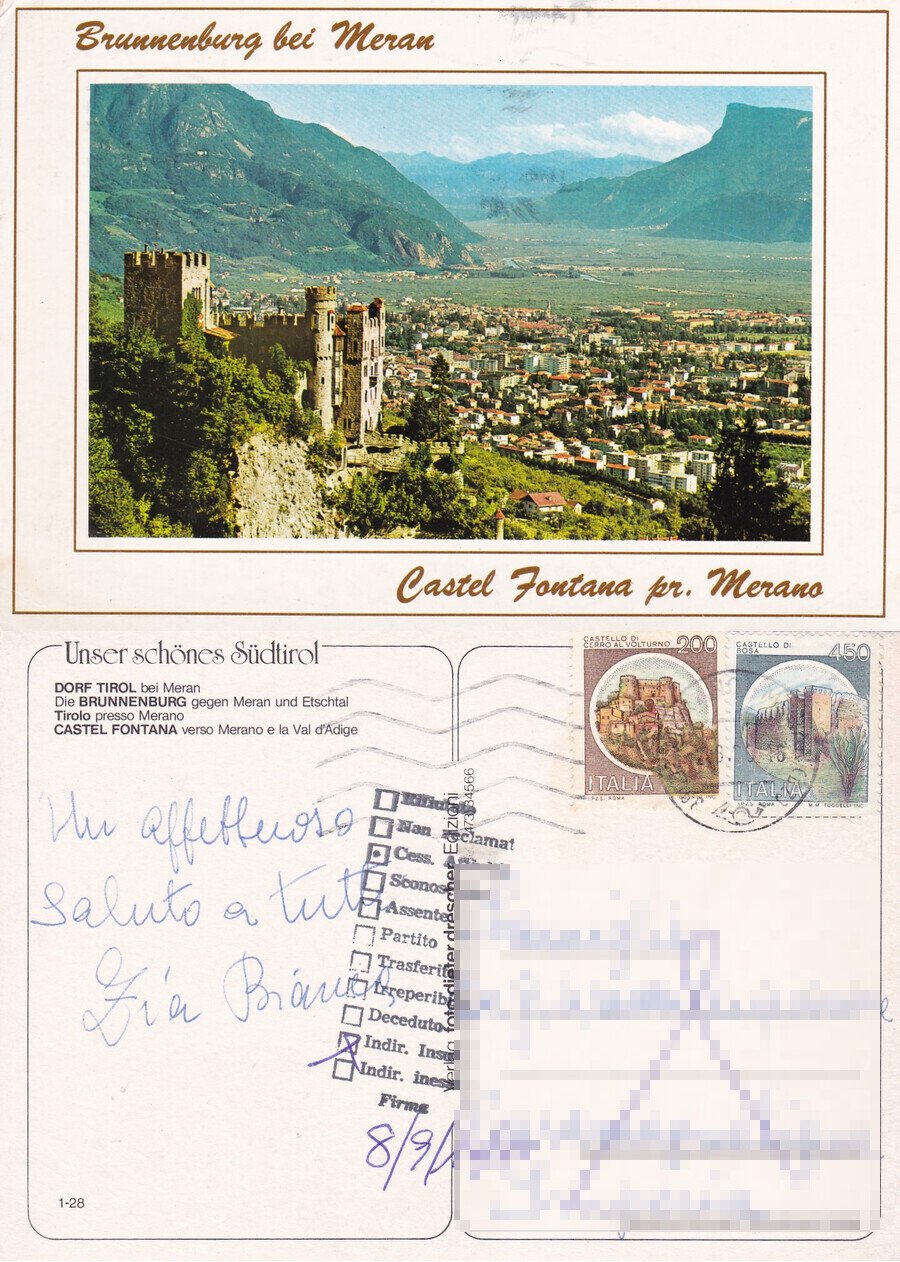 Brunnenburg bei Meran
Castel Fontana pr. Merano
Unser schönes Südtirol
DORF TIROL bei Meran
Die BRUNNENBURG gegen Meran und Etschtal
Tirolo presso Merano
CASTEL FONTANA verso Merano e la Val d'Adige
CASTELLO DI
CERRO AL VOLTURNO
200
ITALIA
I.P.Z.S. ROMA
CASTELLO DI
BOSA
450
ITALIA
I.P.Z.S. ROMA
M.M. TUCCELLI INC.
Un affettuoso
saluto a tutti
Zia Bianca
Rifiutato
Non reclamat
Cess.
Sconos
Assente
Partito
Trasferit
Irreperib
Deceduto
Indir. Insu
Indir. ines
Firma
8/9/
Verlag foto dieter drescher Edizioni
1-28